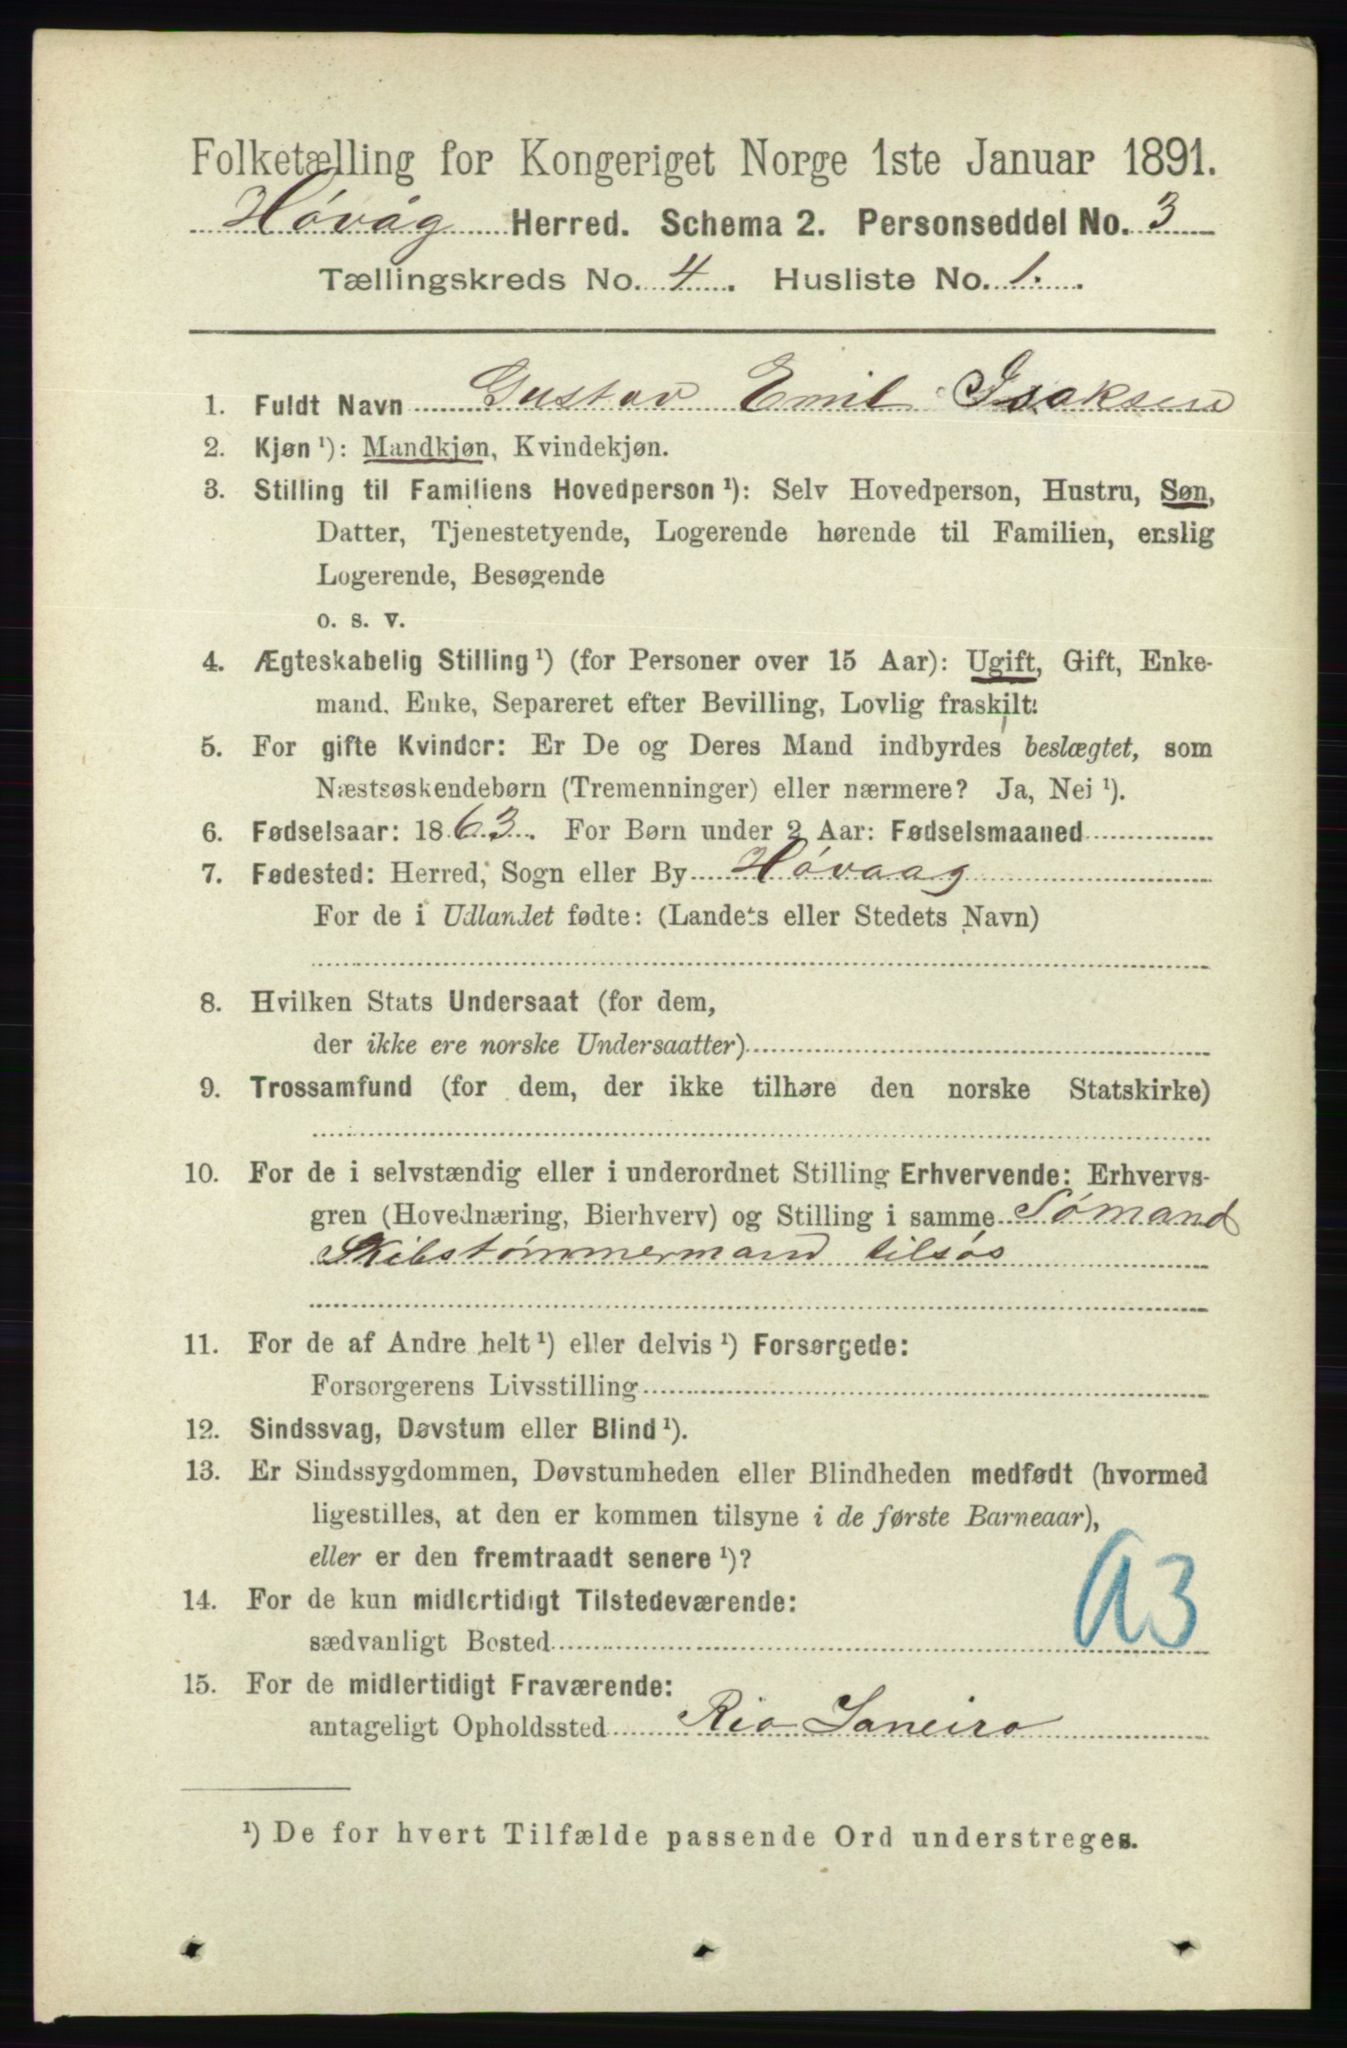 Folketælling for Kongeriget Norge 1ste Januar 1891.
Høvåg Herred. Schema 2. Personseddel No. 3
Tællingskreds No. 4. Husliste No. 1.
1. Fuldt Navn Gustav Emil Isaksen
2. Kjøn ¹): Mandkjøn, Kvindekjøn.
3. Stilling til Familiens Hovedperson ¹): Selv Hovedperson, Hustru, Søn,
Datter, Tjenestetyende, Logerende hørende til Familien, enslig
Logerende, Besøgende
o. s. v.
4. Ægteskabelig Stilling ¹) (for Personer over 15 Aar): Ugift, Gift, Enke-
mand, Enke, Separeret efter Bevilling, Lovlig fraskilt.
5. For gifte Kvinder: Er De og Deres Mand indbyrdes beslægtet, som
Næstsøskendebørn (Tremenninger) eller nærmere? Ja, Nei ¹).
6. Fødselsaar: 1863. For Børn under 2 Aar: Fødselsmaaned
7. Fødested: Herred, Sogn eller By Høvaag
For de i Udlandet fødte: (Landets eller Stedets Navn)
8. Hvilken Stats Undersaat (for dem,
der ikke ere norske Undersaatter)
9. Trossamfund (for dem, der ikke tilhøre den norske Statskirke)
10. For de i selvstændig eller i underordnet Stilling Erhvervende: Erhvervs-
gren (Hovednæring, Bierhverv) og Stilling i samme Sømand
Skibstømmermand tilsøs
11. For de af Andre helt ¹) eller delvis ¹) Forsørgede:
Forsørgerens Livsstilling
12. Sindssvag, Døvstum eller Blind ¹).
13. Er Sindssygdommen, Døvstumheden eller Blindheden medfødt (hvormed
ligestilles, at den er kommen tilsyne i de første Barneaar),
eller er den fremtraadt senere ¹)?
14. For de kun midlertidigt Tilstedeværende:
sædvanligt Bosted
A3
15. For de midlertidigt Fraværende:
antageligt Opholdssted Rio Janeiro
¹) De for hvert Tilfælde passende Ord understreges.